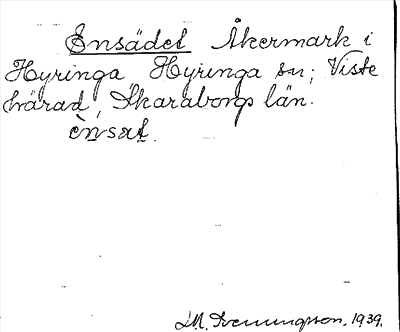 Ensädet Åkermark i
Hyringa, Hyringa sn; Viste
härad, Skaraborgs län.
ènsæt.
M. Svenungsson. 1939.